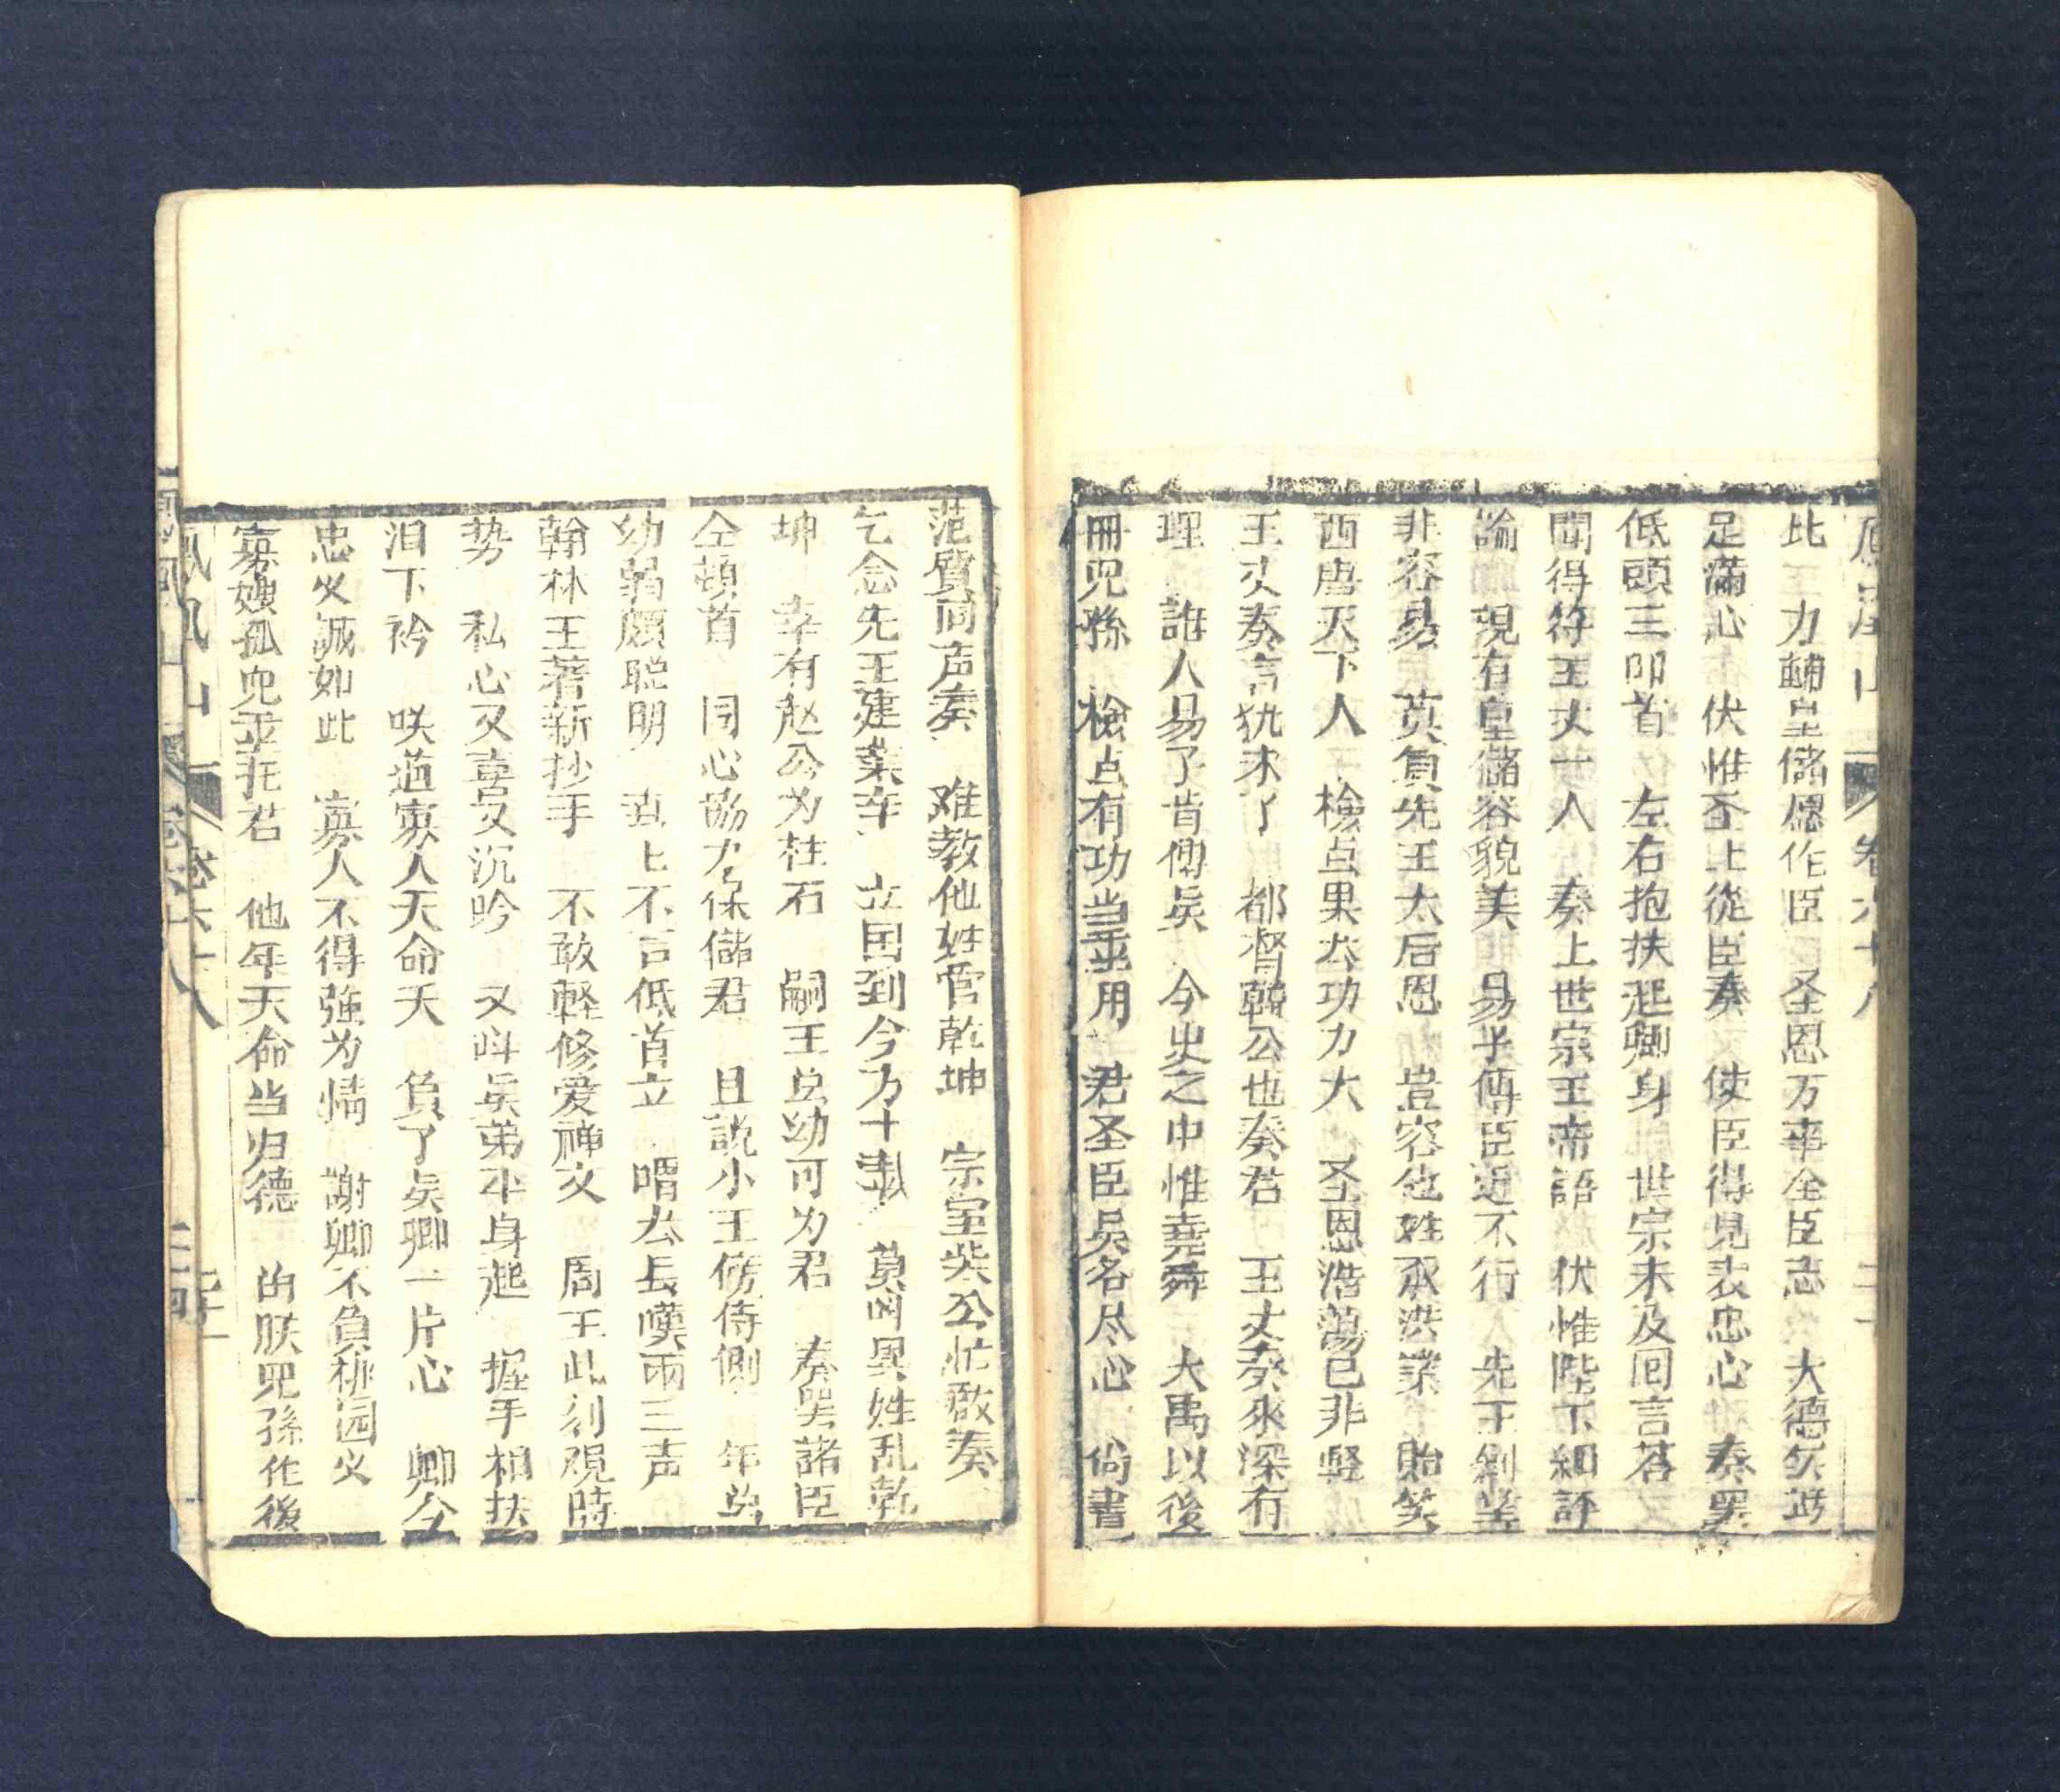 鳳凰山 卷六十八
比 力輔皇儲愿作臣 圣恩万幸全臣志 大德矣
足滿心 伏惟圣上從臣奏 使臣得見表忠心 奏罢
低頭三叩首 左右抱扶起卿身 世宗未及回言荅
聞得符王丈一人 奏上世宗王帝語 伏惟陛下細評
論 現有皇儲容貌美 易乎傳臣近不行 先王創業
非容易 莫負先王太后恩 豈容他姓承洪業 貽笑
西唐天下人 檢点果大功力大 圣恩浩蕩已非輕
王丈奏言犹未了 都督韓公也奏君 王丈奏來深有
理 誰人易了肯傳吴 今史之中惟堯舜 大禹以後
冊児孫 檢点有功当重用 君圣臣吴各尽心 尚書
范質同声奏 难教他姓管乾坤 宗室柴公忙啟奏
乞念先王建業辛 立国到今方十載 莫叫異姓乱乾
坤 幸有赵公为柱石 嗣王虽幼可为君 奏罢諸臣
全頓首 同心協力保儲君 且說小王傍侍側 年虽
幼弱頗聡明 直上不言低首立 喟然長嘆兩三声
翰林王著新抄手 不敢輕修爱禅文 周王此刻覌時
势 私心又喜又沉吟 又叫吴弟平身起 握手相扶
泪下衿 咲道寡人天命夭 負了吴卿一片心 卿今
忠义誠如此 寡人不得強为情 謝卿不負桃园义
寡嫂孤兒並托君 他年天命当归德 的朕児孫作後
鳳凰山 卷六十八